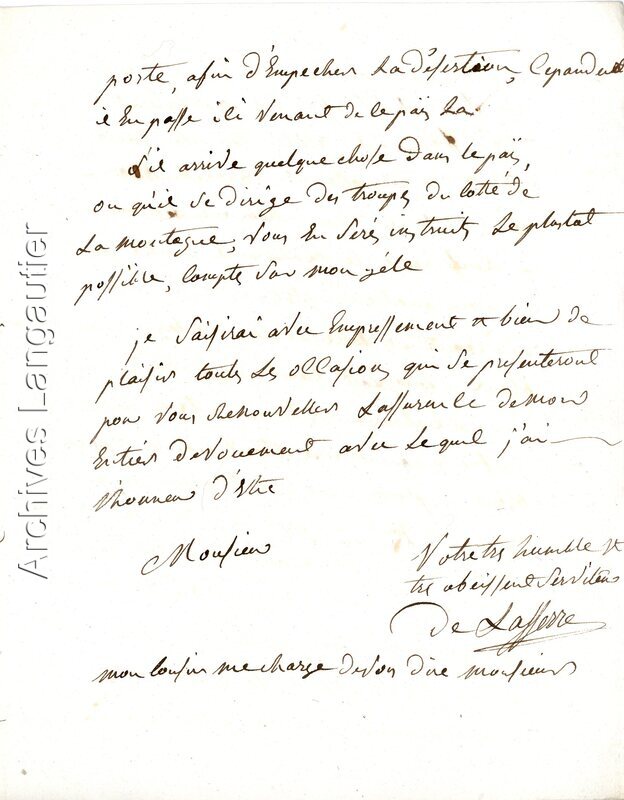 poste, afin d'Empecher La désertion, Cependent
il En passe ici venant de le païs La.
S'il arrive quelque chose dans le païs,
ou qu'il se dirige des troupes du Cotté de
La montagne, vous En serés instruit Le plustot
possible, Comptés sur mon zéle
je saisirai avec Empressement & bien de
plaisir toutes Les occasions qui se presenteront
pour vous Renouveller L'assurence de mon
Entier devouement avec Lequel j'ai
l'honneur d'Etre
Monsieur
Votre tres humble &
tres obeissent serviteur
De Lasserre
mon Cousin me charge de vous dire monsieur
Archives Langautier